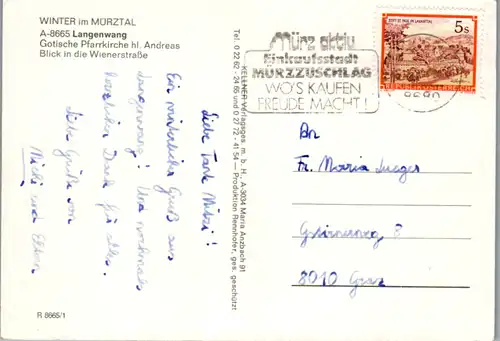 WINTER im MÜRZTAL
A-8665 Langenwang
Gotische Pfarrkirche hl. Andreas
Blick in die Wienerstraße
Liebe Tante Mitzi!
Ein winterlicher Gruß aus
Langenwang! Und nochmals
herzlichen Dank für alles.
Liebe Grüße von
Michi und Eltern
R 8665/1
KELLNER Verlagsges. m. b. H., A-3034 Maria Anzbach 91
Tel. 0 22 62 - 24 65 und 0 27 72 - 41 54 – Produktion Rennhofer, ges. geschützt
Mürz aktiv
Einkaufsstadt
MÜRZZUSCHLAG
WO'S KAUFEN
FREUDE MACHT!
5s
REPUBLIK ÖSTERREICH
An
Fr. Maria
8
8010 Graz